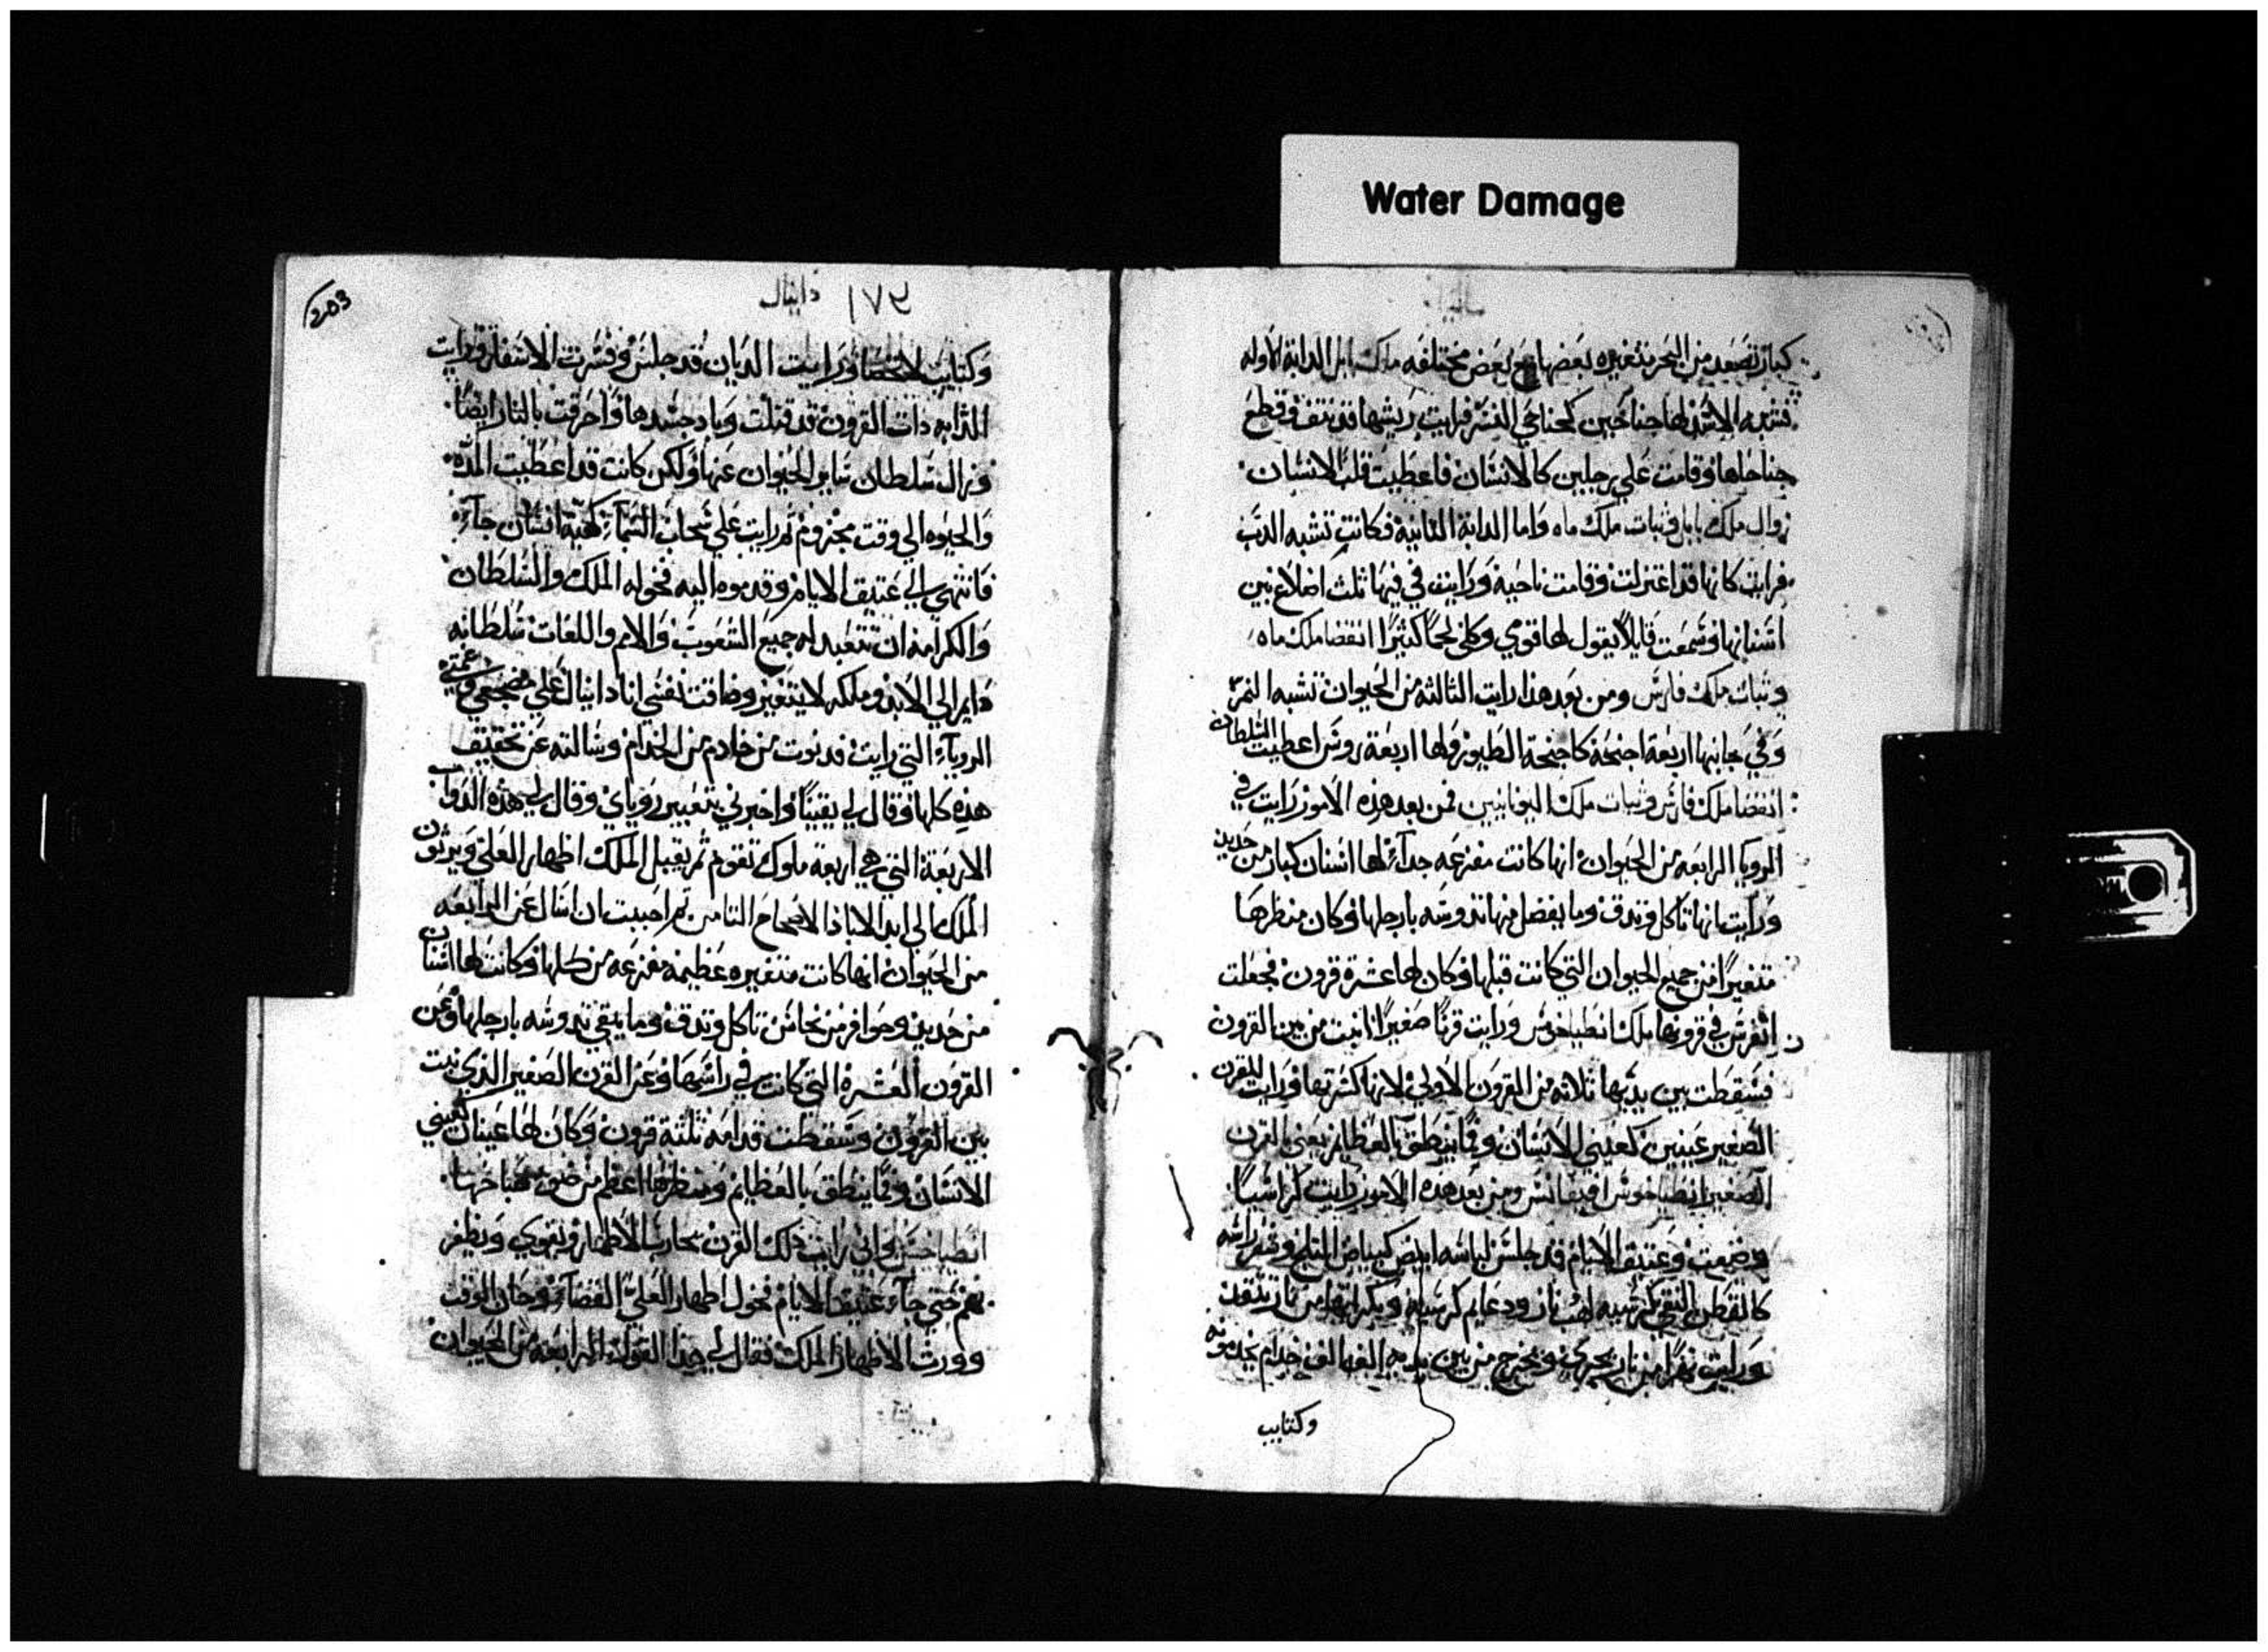 Water Damage
كبار تصعد من البحر متغيره بعضها مع بعض مختلفه ملك بابل الدابة الاوله
تشبه الاسد لها جناحين كجناحي النسر فرايت ريشها قد نتف وقطع
جناحاها وقامت علي رجلين كالانسان فاعطيت قلب الانسان
زوال ملك بابل وثبات ملك ماه واما الدابة الثانية فكانت تشبه الدب
فرايت كانها قد اعتزلت وقامت ناحية ورايت في فيها ثلث اضلاع بين
اسنانها وسمعت قايلاً يقول لها قومي وكلي لحماً كثيرًا انقضا ملك ماه
وثبات ملك فارس ومن بعد هذا رايت الثالثه من الحيوان تشبه النمر
وفي جانبها اربعة اجنحة كاجنحة الطيور ولها اربعة روس اعطيت السلطان
انقضا ملك فارس وثبات ملك اليونانيين فمن بعد هذه الامور رايت في
الرويا الرابعه من الحيوان انها كانت مفزعه جداً لها اسنان كبار من حديد
ورايت انها تاكل وتدق وما يفضل منها تدوسه بارجلها وكان منظرها
متغيرًا من جميع الحيوان التي كانت قبلها وكان لها عشرة قرون فجعلت
اتفرس في قرونها ملك انطياخوس ورايت قرنًا صغيرًا نبت من بين القرون
فسقطت بين يديها ثلاثه من القرون الاولي لانها كسرتها ورايت للقرن
الصغير عينين كعيني الانسان وفماً ينطق بالعظايم يعني القرن
الصغير انطياخوس ومن بعد هذه الامور رايت كراسياً
وضعت وعتيق الايام قد جلس لباسه ابيض كبياض الثلج وشعر راسه
كالقطن النقي كرسيه لهب نار ودعايم كرسيه نار تتقد
ورايت نهرًا من نار يجري ويخرج من بين يديه الف الف خدام يخدمونه
وكتايب
203
١٧٤ دانيال
وكتايب لا تحصا ورايت الديان قد جلس وفسرت الاسفار ورايت
الدابه ذات القرون قد قتلت وباد جسدها واحرقت بالنار ايضاً
وزال سلطان ساير الحيوان عنها ولكن كانت قد اعطيت المده
والحيوه الي وقت مجزوم ثم رايت علي سحاب السماء كهية انسان جاء
فانتهي الي عتيق الايام وقدموه اليه فخوله الملك والسلطان
والكرامه ان تتعبد له جميع الشعوب والامم واللغات سلطانه
دايم الي الابد وملكه لا يتغير وضاقت نفسي انا دانيال علي مضجعي وغمتني
الروياء التي رايت فدنوت من خادم من الخدام وسالته عن تحقيق
هذه كلها فقال لي يقيناً واخبرني بتعبير روياي وقال لي هذه الدواب
الاربعة التي هي اربعة ملوك تقوم ثم يقبل الملك اظهار العلي ويرثون
الملك الي ابد الاباد الاصحاح الثامن ثم احببت ان اسال عن الرابعه
من الحيوان انها كانت متغيره عظيمه مفزعه من كلها وكانت لها اسنان
من حديد وحوافر من نحاس تاكل وتدق وما يبقي تدوسه بارجلها وعن
القرون العشرة التي كانت في راسها وعن القرن الصغير الذي نبت
بين القرون وسقطت قدامه ثلثة قرون وكان لها عينان كعيني
الانسان وفماً ينطق بالعظايم ومنظرها اعظم من
انطياخس واني رايت ذلك القرن يحارب الاطهار ويقوي ويظفر
بهم حتي جاء عتيق الايام فخول اطهار العلي القضاء وحان الوقت
وورث الاطهار الملك فقال لي هذا القول الرابعه من الحيوان